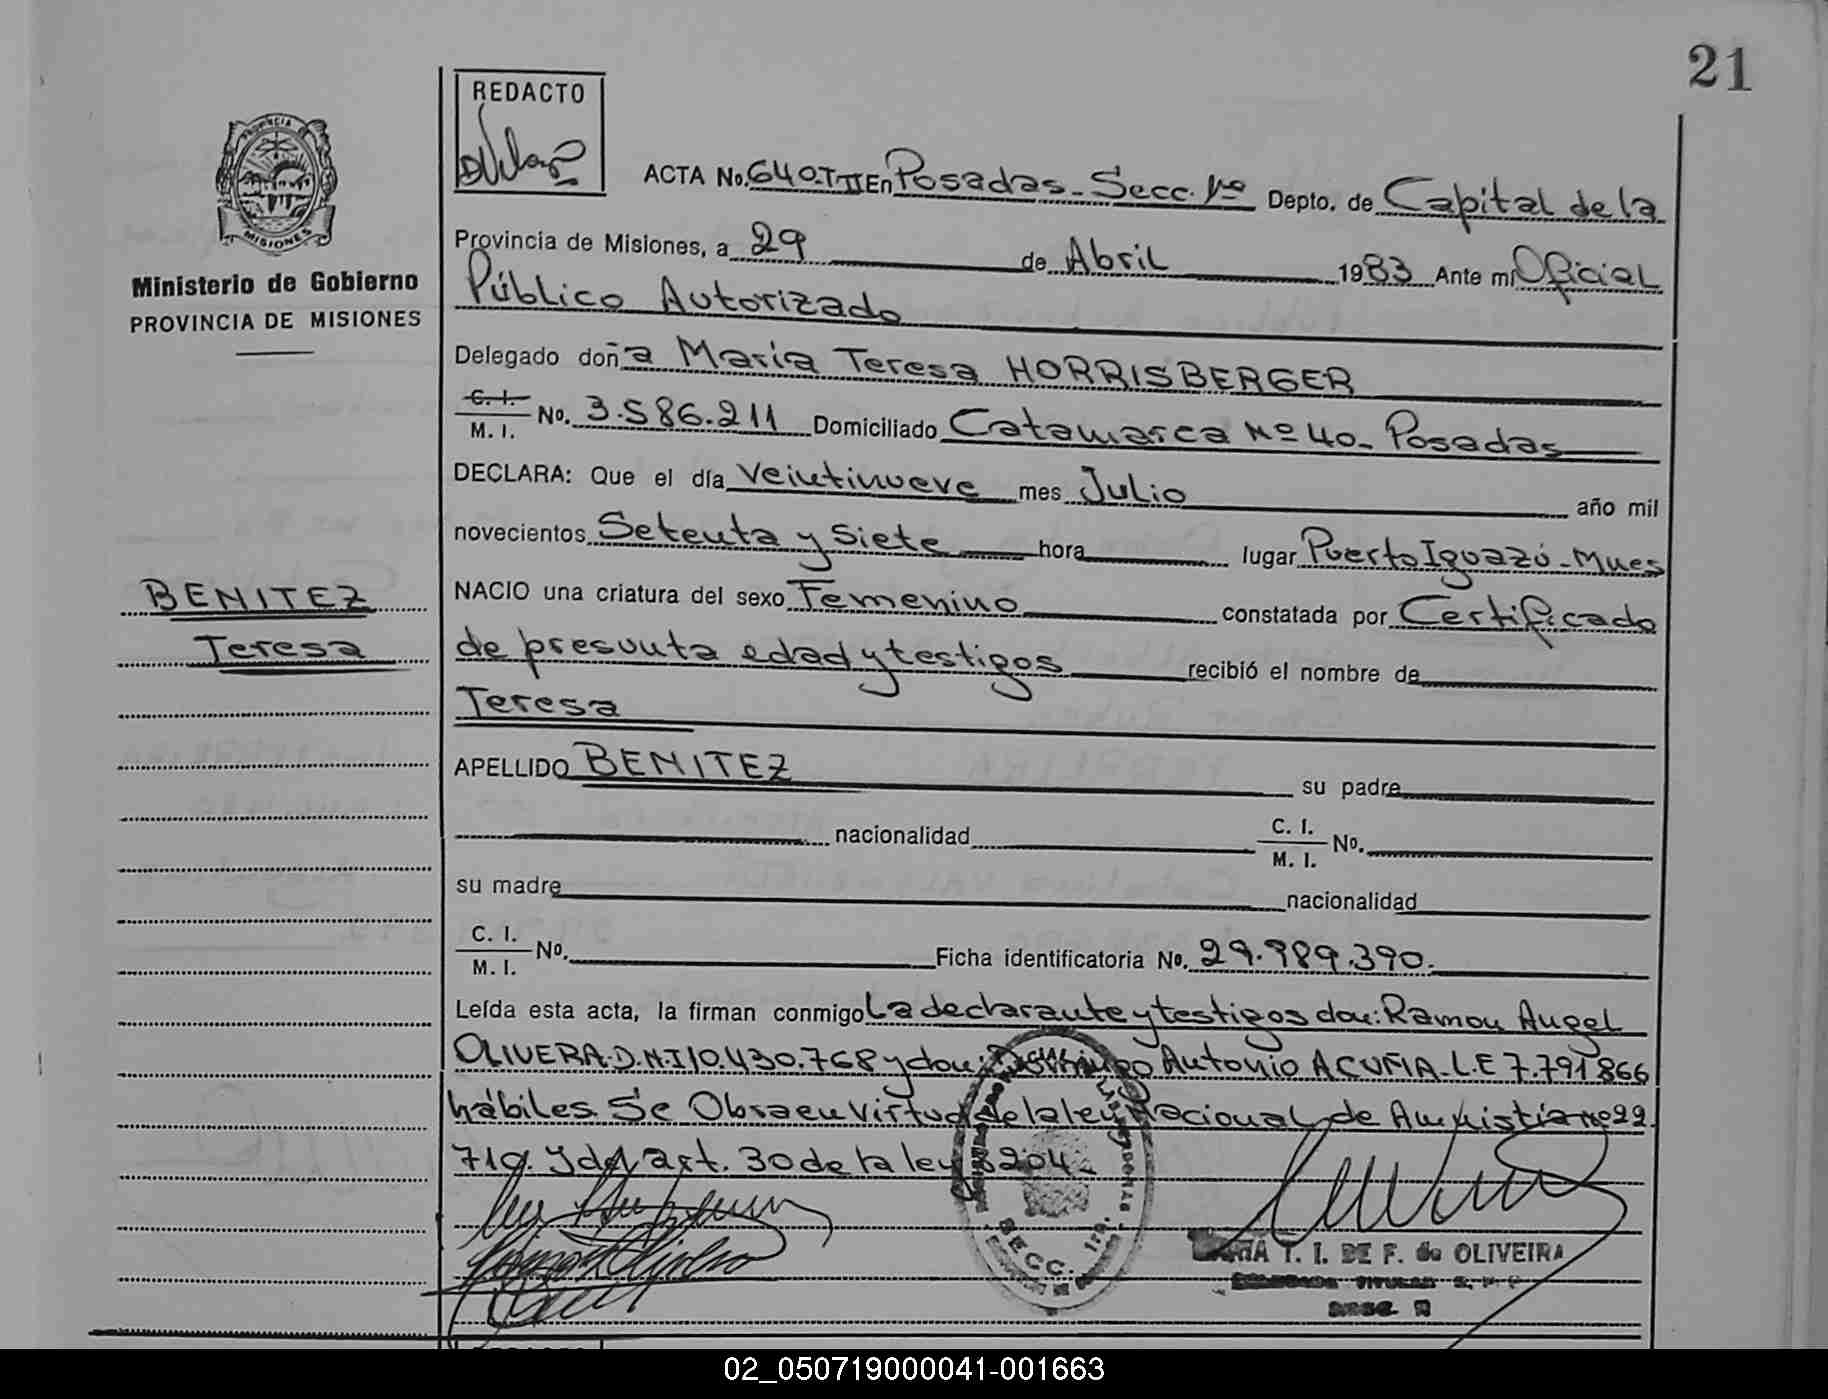 21
REDACTO
PROVINCIA DE
MISIONES
Ministerio de Gobierno
PROVINCIA DE MISIONES
BENITEZ
Teresa
ACTA No. 640.T II En Posadas - Secc. 1ra Depto. de Capital de la
Provincia de Misiones, a 29 de Abril 1983 Ante mí Oficial
Público Autorizado
Delegado doña Maria Teresa HORRISBERGER
C. I. / M. I. No. 3.586.211 Domiciliado Catamarca Nº 40 - Posadas
DECLARA: Que el día veintinueve mes Julio año mil
novecientos Setenta y Siete hora lugar Puerto Iguazú - Mnes
NACIO una criatura del sexo Femenino constatada por Certificado
de presunta edad y testigos recibió el nombre de
Teresa
APELLIDO BENITEZ su padre
nacionalidad C. I. / M. I. No.
su madre nacionalidad
C. I. / M. I. No. Ficha identificatoria No. 29.989.390.
Leída esta acta, la firman conmigo La declarante y testigos don: Ramon Angel
OLIVERA. D.N.I 10.430.768 y don: Antonio ACUÑA - L.E 7.791866
hábiles. Se Obra en virtud de la ley Nacional de Amnistia Nº 22.
719. y del art. 30 de la ley 8204.
SECC. 1ra.
T. I. DE F. de OLIVEIRA
02_050719000041-001663